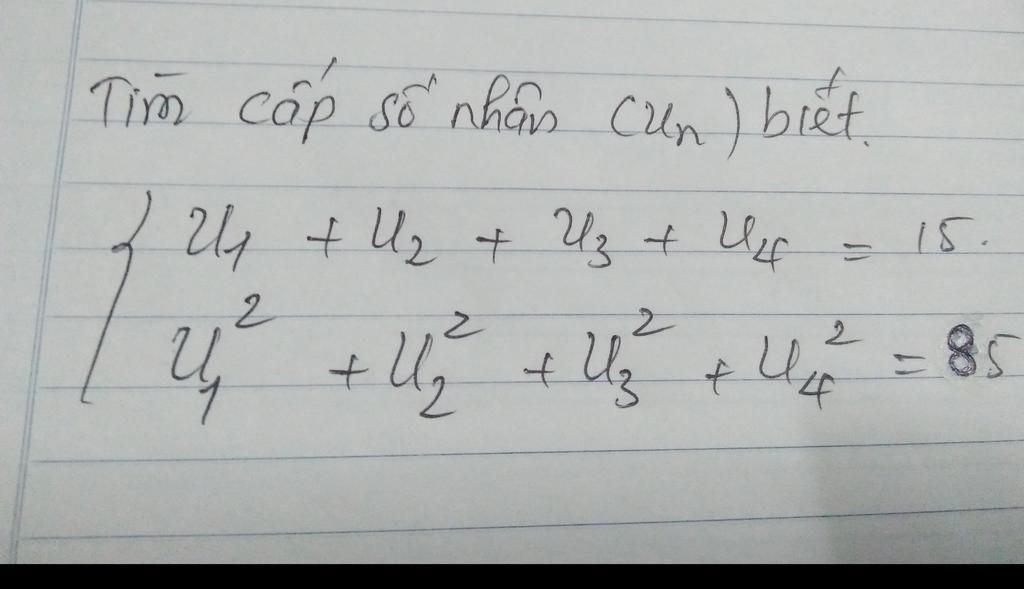 Tìm cấp số nhân (Un) biết.
U1 + U2 + U3 + U4 = 15.
U1² + U2² + U3² + U4² = 85